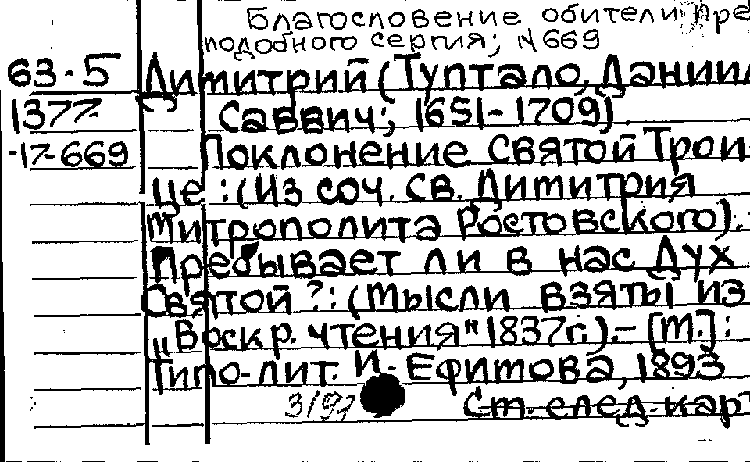 Благословение обители пре
подобного сергия; N 669
63.5 Димитрий (Туптало, Даниил
1377- Саввич; 1651-1709).
-17-669 Поклонение святой Трои-
це : (Из соч. св. Димитрия
Митрополита Ростовского).
Пребывает ли в нас Дух
Святой? : (мысли взяты из
„Воскр. чтения" 1837г.).- [М.] :
Типо-лит. И. Ефимова, 1893
3/91 См. след. кар